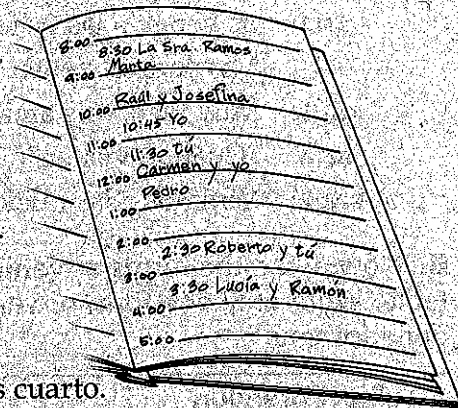 8:00
8:30 La Sra. Ramos
9:00 Marta
10:00 Raúl y Josefina
10:45 Yo
11:00
11:30 tú
12:00 Carmen y yo
Pedro
1:00
2:00
2:30 Roberto y tú
3:00
3:30 Lucía y Ramón
4:00
5:00
s cuarto.